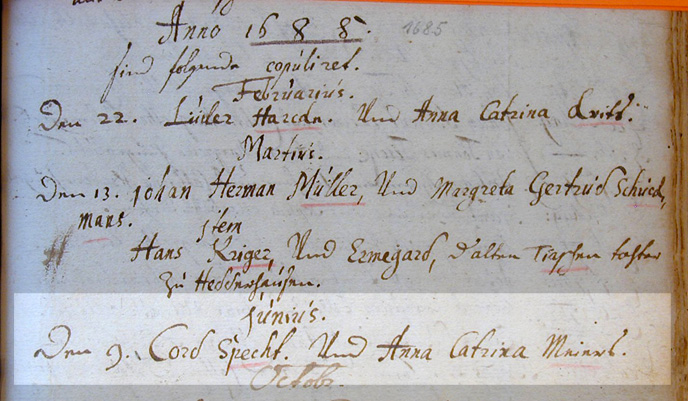 Anno 1688. 1685
sind folgende copúliret.
Februarius.
Den 22. Lúder Harcke. Und Anna Catrina
Martiús.
Den 13. Johan Herman Múller, Und Margreta Gertrud Schúck,
mans. Item
Hans Kriger, Und Ermegard, d'alten tochter
Zú Heddeshaúsen.
Júniús.
Den 9. Cord Specht. Und Anna Catrina Meiers.
Octobr.